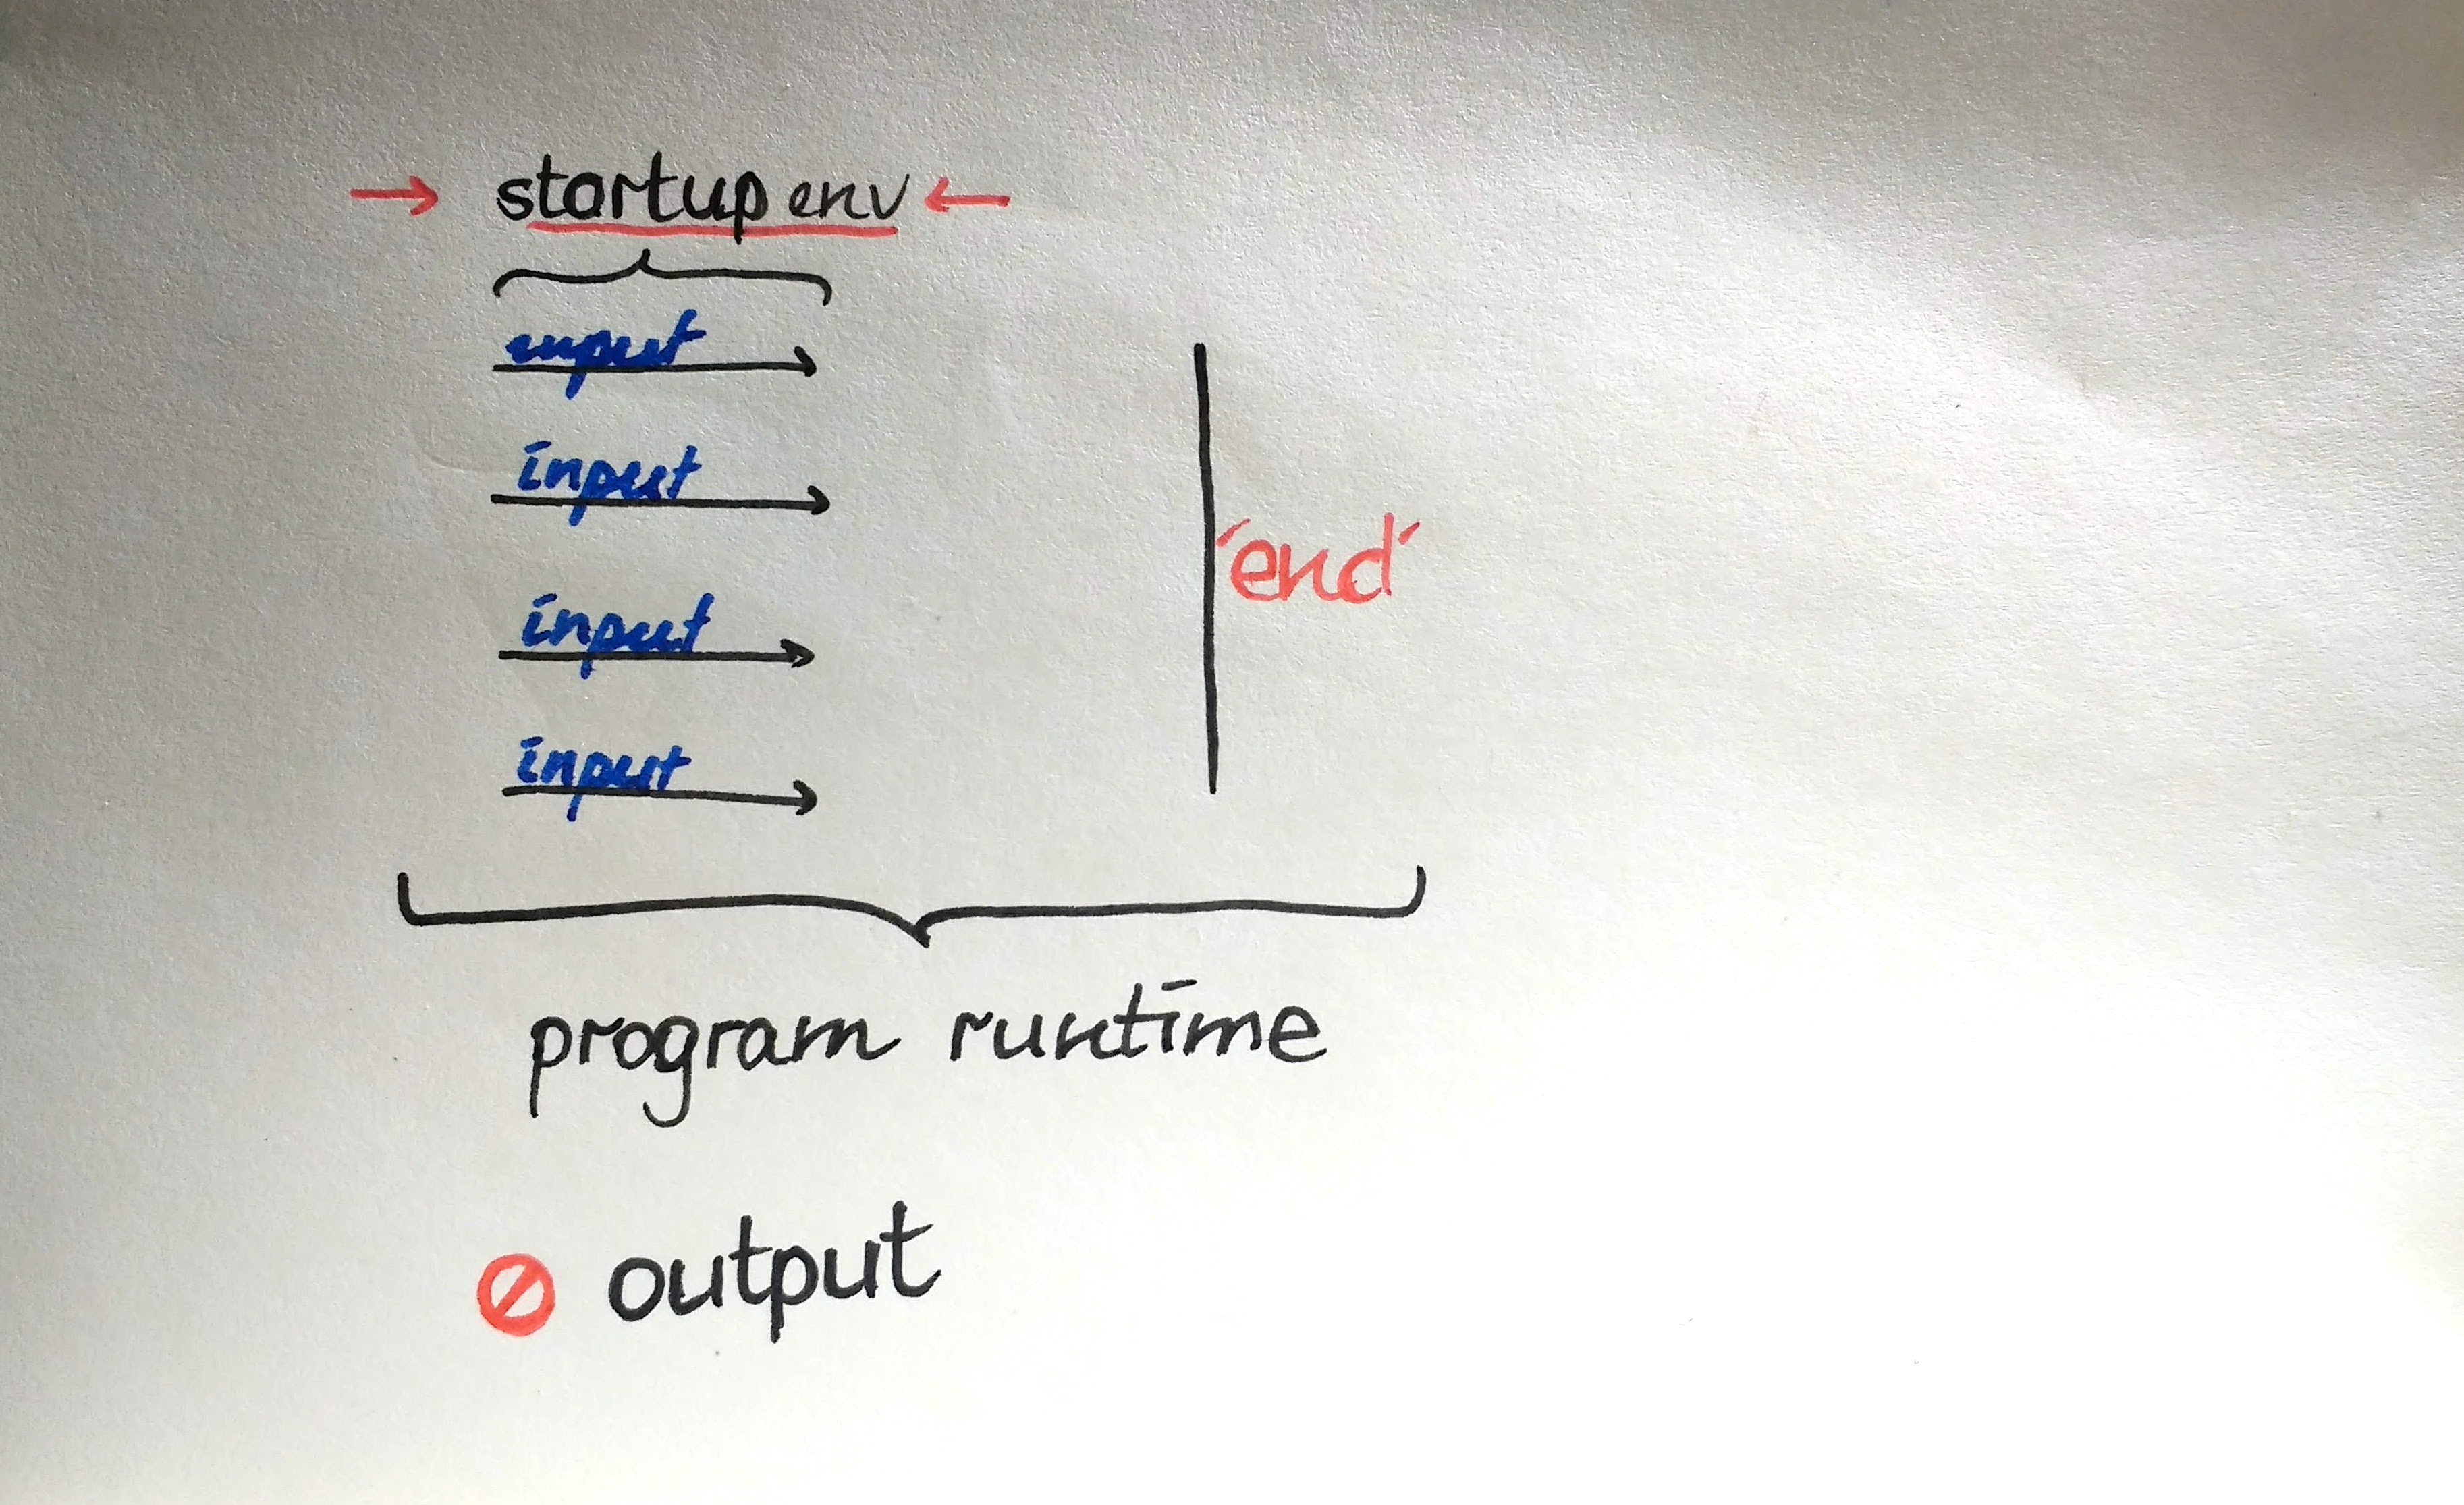 startup env
input
input
input
input
'end'
program runtime
output